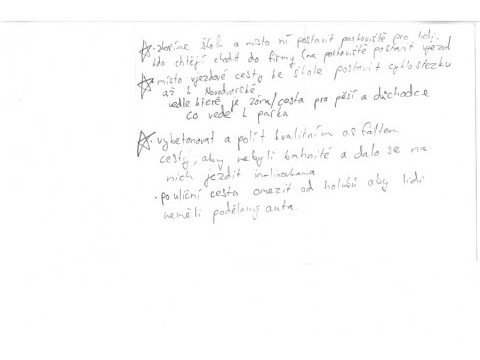 zbořme školu a místo ní postavit parkoviště pro lidi,
kdo chtějí chodit do firmy (na parkoviště postavit vjezd
místo vjezdové cesty ke škole postavit cyklostezku
až k Novodvorské
vedle které je zóna/cesta pro pěší a důchodce
co vede k parku
vybetonovat a polít kvalitním asfaltem
cesty, aby nebyli bahnité a dalo se na
nich jezdit
• pouliční cestu omezit od holubů aby lidi
neměli podělaný auta.